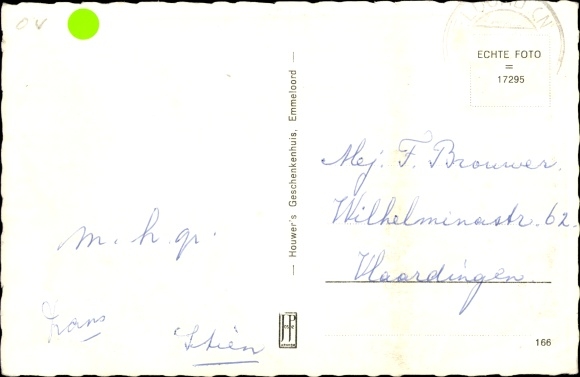 ov
ECHTE FOTO
=
17295
— Houwer's Geschenkenhuis, Emmeloord —
Mej. F. Brouwer.
Wilhelminastr. 62.
Vlaardingen.
m. h. gr.
Stien
166